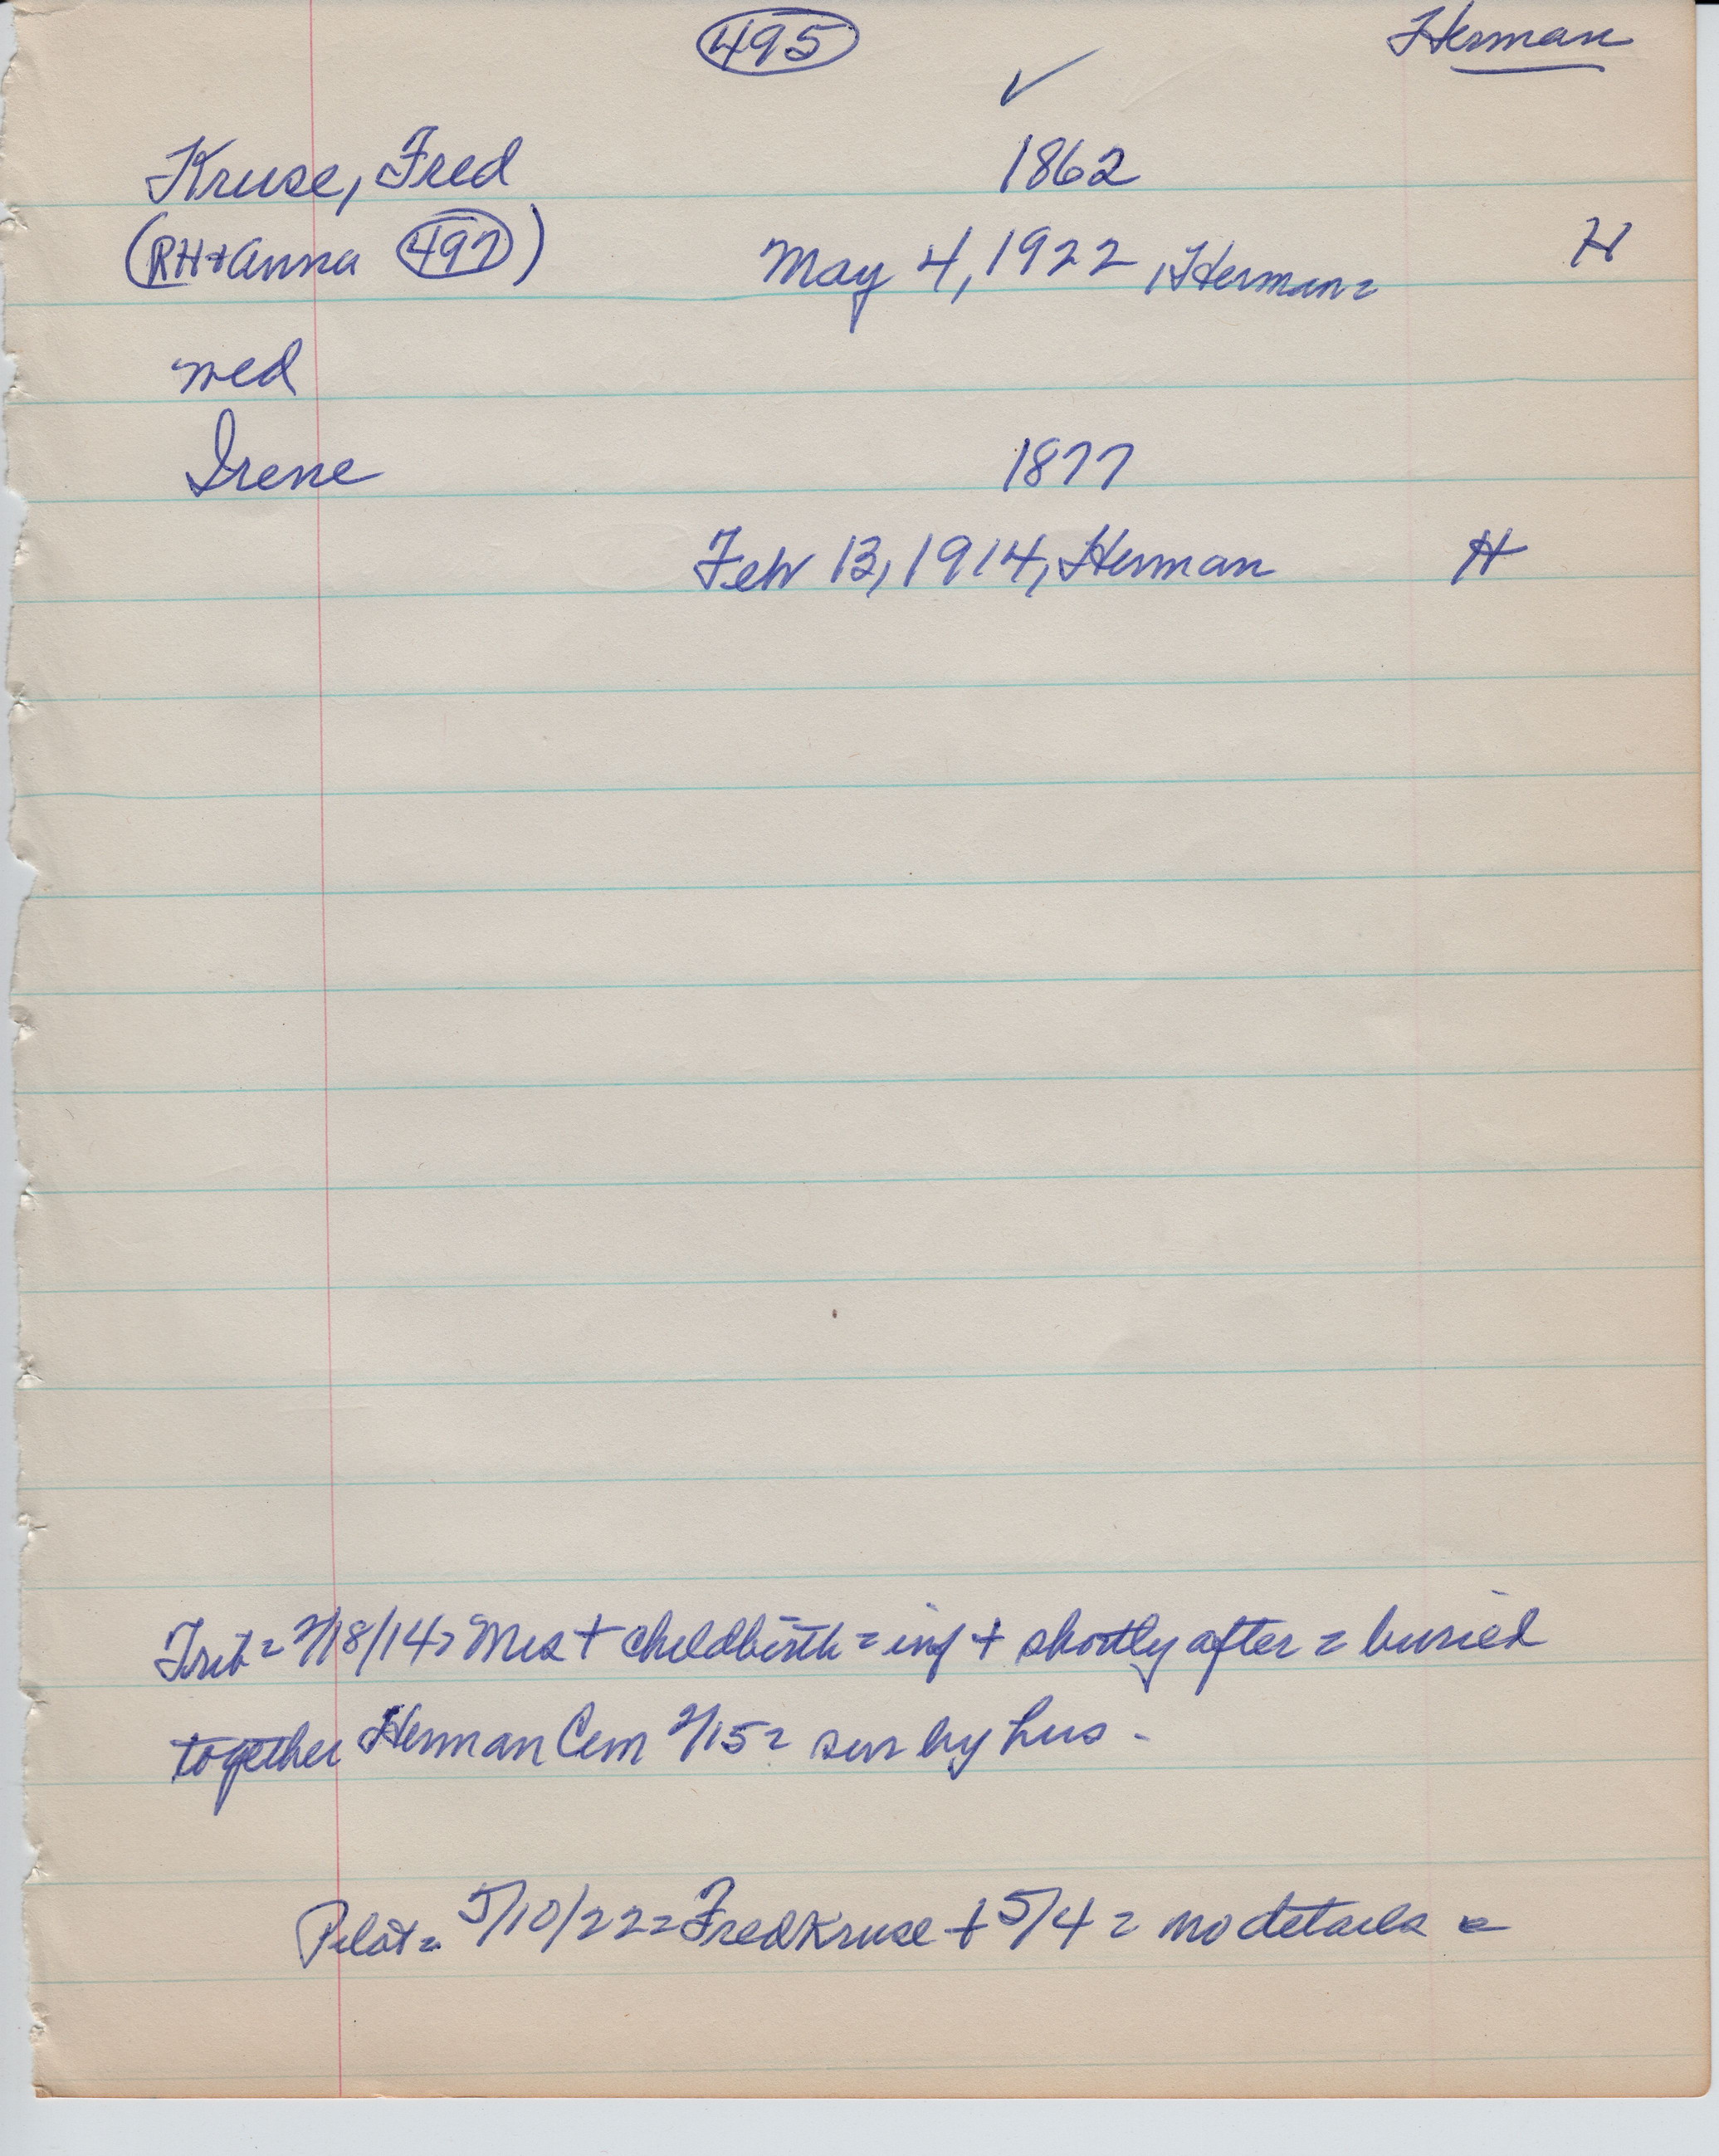 495 Herman
✓
Kruse, Fred 1862
(RH + Anna 497) May 4, 1922, Herman = H
med
Irene 1877
Feb 13, 1914, Herman H
Trib = 2/18/14 = Mrs + childbirth = inf + shortly after = buried
together Herman Cem 2/15 = sur by hus -
Pilot = 5/10/22 = Fred Kruse + 5/4 = no details =